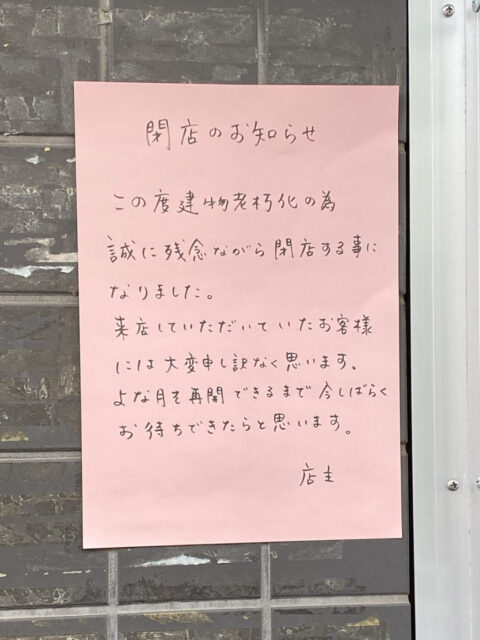 閉店のお知らせ
この度建物老朽化の為
誠に残念ながら閉店する事に
なりました。
来店していただいていたお客様
には大変申し訳なく思います。
よな月を再開できるまで今しばらく
お待ちできたらと思います。
店主